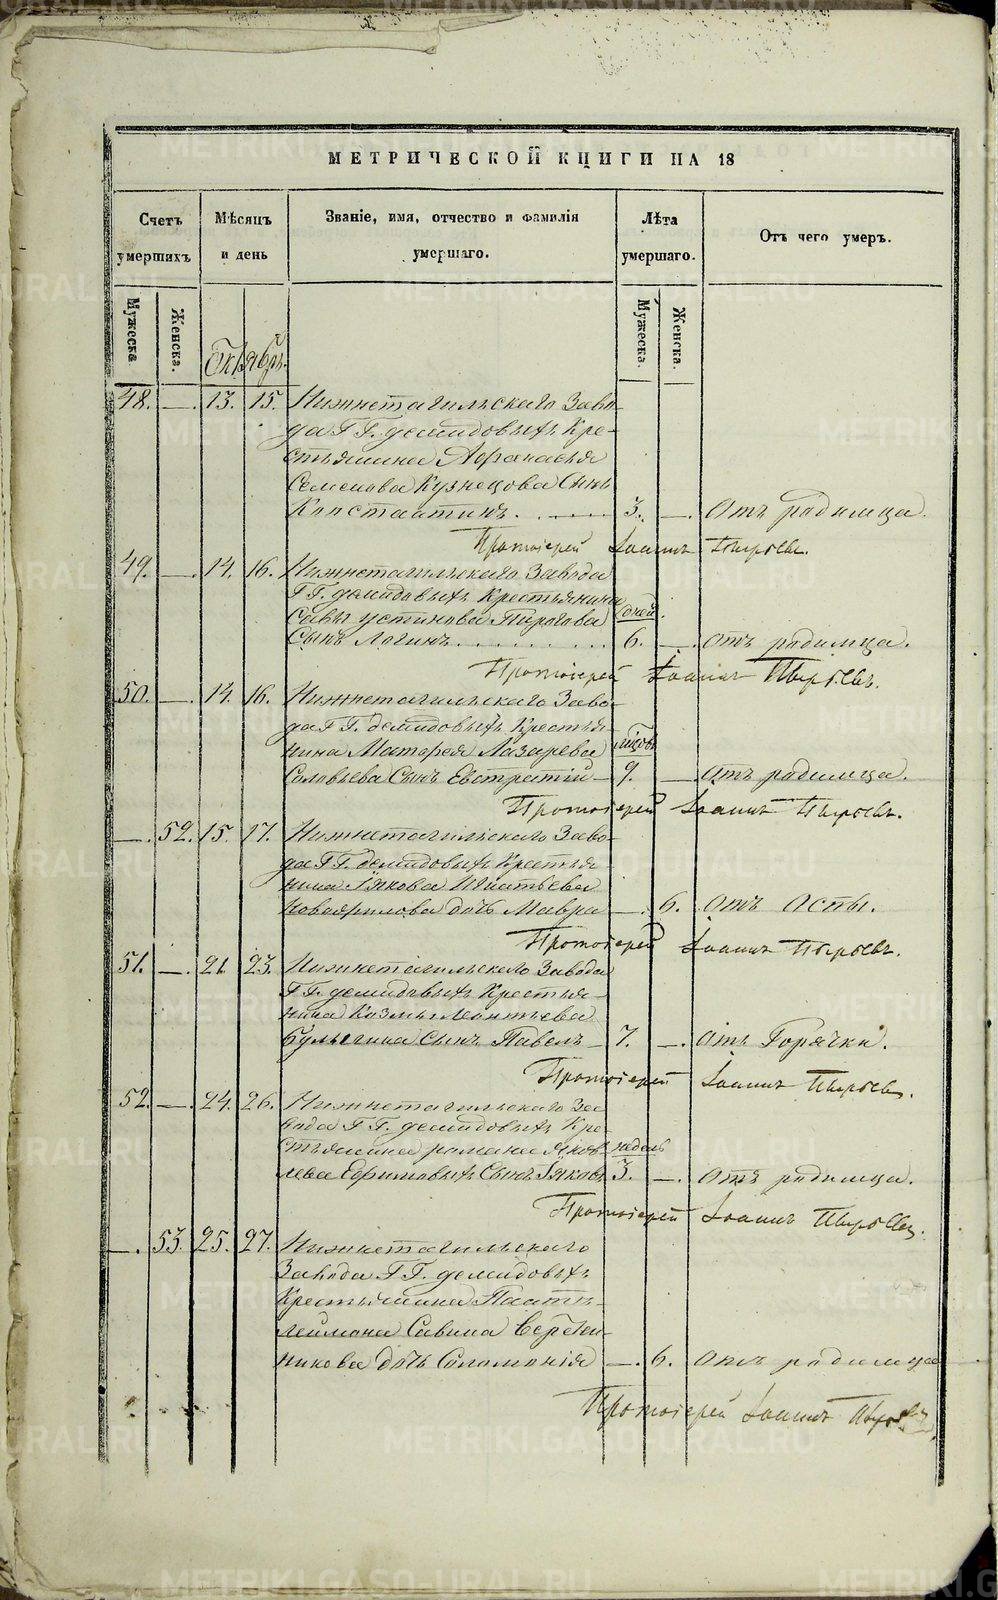 МЕТРИЧЕСКОЙ КНИГИ НА 18
Счетъ умершихъ
Мѣсяцъ и день
Званіе, имя, отчество и фамилія умершаго.
Лѣта умершаго.
Отъ чего умеръ.
Мужеска. Женска.
Октябрь.
Мужеска. Женска.
48. —. 13. 15. Нижнетагильскаго Заво-
да ГГ. Демидовыхъ Кре-
стьянина Афанасья
Семенова Кузнецова Сынъ
Константинъ. 3. —. Отъ родимца.
Протоіерей Іоаннъ Пырьевъ.
49. —. 14. 16. Нижнетагильскаго Завода
ГГ. Демидовыхъ Крестьянина
Савы Устинова Пирогова дней.
Сынъ Логинъ. 6. —. Отъ родимца.
Протоіерей Іоаннъ Пырьевъ.
50. —. 14. 16. Нижнетагильскаго Заво-
да ГГ. Демидовыхъ Крестья-
нина Матфея Лазарева
Соловьева Сынъ Евстратій 9. —. Отъ родимца.
Протоіерей Іоаннъ Пырьевъ.
—. 52. 15. 17. Нижнетагильскаго Заво-
да ГГ. Демидовыхъ Крестья-
нина Якова Игнатьева
дочь Мавра —. 6. Отъ Оспы.
Протоіерей Іоаннъ Пырьевъ.
51. —. 21. 23. Нижнетагильскаго Завода
ГГ. Демидовыхъ Крестья-
нина Козмы Леонтьева
Булыгина Сынъ Павелъ 7. —. Отъ Горячки.
Протоіерей Іоаннъ Пырьевъ.
52. —. 24. 26. Нижнетагильскаго За-
вода ГГ. Демидовыхъ Кре-
стьянина Романа Яков- недель
лева Ефимовыхъ Сынъ Яковъ 3. —. Отъ родимца.
Протоіерей Іоаннъ Пырьевъ.
—. 53. 25. 27. Нижнетагильскаго
Завода ГГ. Демидовыхъ
Крестьянина Панте-
леймона Савина
дочь Соломонія —. 6. Отъ родимца
Протоіерей Іоаннъ Пырьевъ.
METRIKI.GASO-URAL.RU